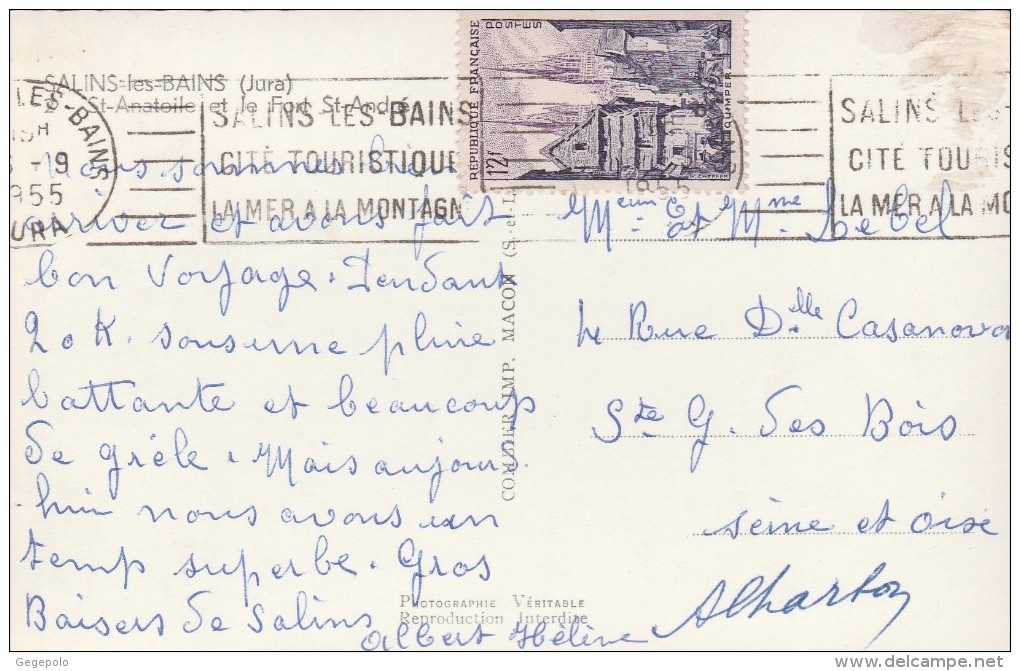 SALINS-les-BAINS (Jura)
2 - St-Anatoile et le Fort St-André
LES-BAINS
15H
-9
1955
JURA
SALINS-LES-BAINS
CITÉ TOURISTIQUE
LA MER A LA MONTAGN
RÉPUBLIQUE FRANÇAISE
POSTES
12F
QUIMPER
1955
SALINS LES-
CITÉ TOURIS
LA MER A LA MO
Nous sommes bien
arriver et avons fait
bon voyage. Pendant
20 K. sous une pluie
battante et beaucoup
de grèle. Mais aujour
-hui nous avons un
temp superbe. Gros
Baisers de Salins
Albert Hélène
COMBIER IMP. MACON (S.-et-L.
PHOTOGRAPHIE VÉRITABLE
Reproduction Interdite
Meur Et Mme Lebel
4 Rue Delle Casanova
Ste G. des Bois
Seine et Oise
Gegepolo
www.delcampe.net